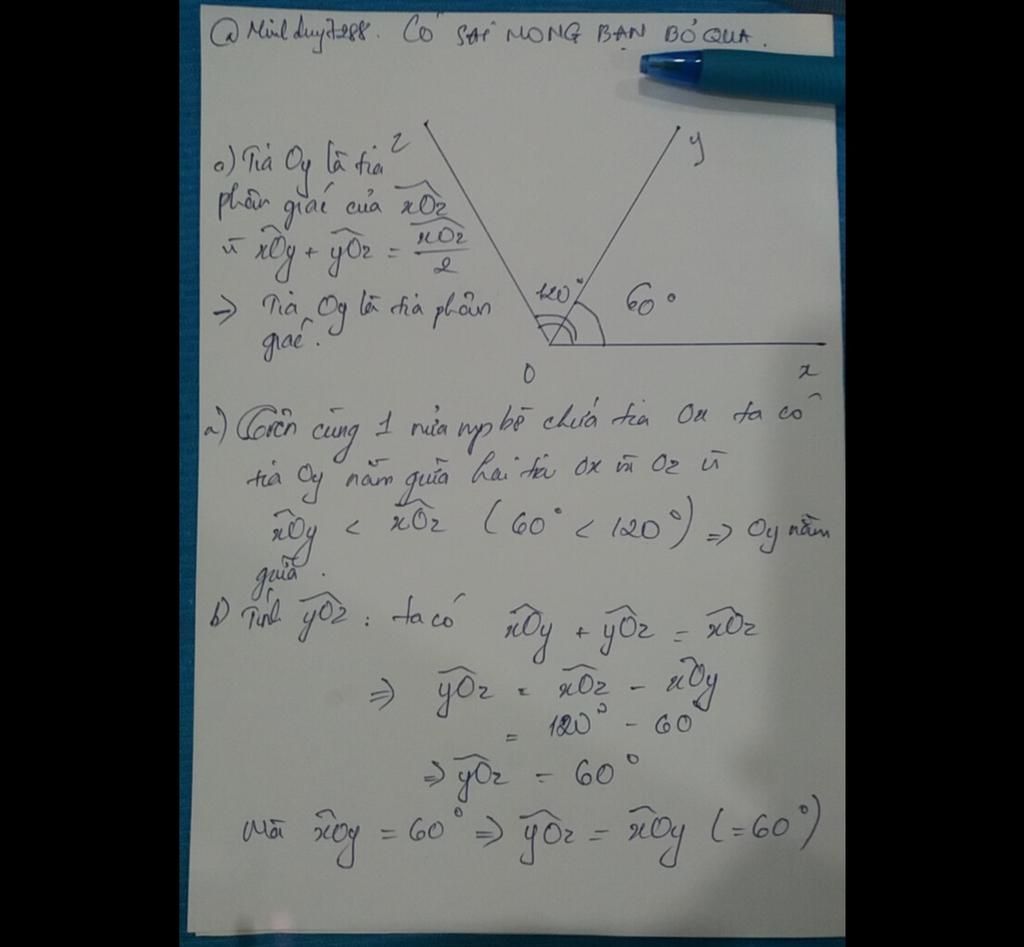 @ Minhduy7288. CÓ SAI MONG BẠN BỎ QUA.
z
y
120°
60°
O
x
c) Tia Oy là tia
phân giác của xOz
vì xOy + yOz = xOz/2
→ Tia Oy là tia phân
giác.
a) Trên cùng 1 nửa mp bờ chứa tia Ox ta có
tia Oy nằm giữa hai tia Ox và Oz vì
xOy < xOz (60° < 120°) ⇒ Oy nằm
giữa.
b) Tính yOz : ta có xOy + yOz = xOz
⇒ yOz = xOz - xOy
= 120° - 60°
⇒ yOz = 60°
Mà xOy = 60° ⇒ yOz = xOy (=60°)